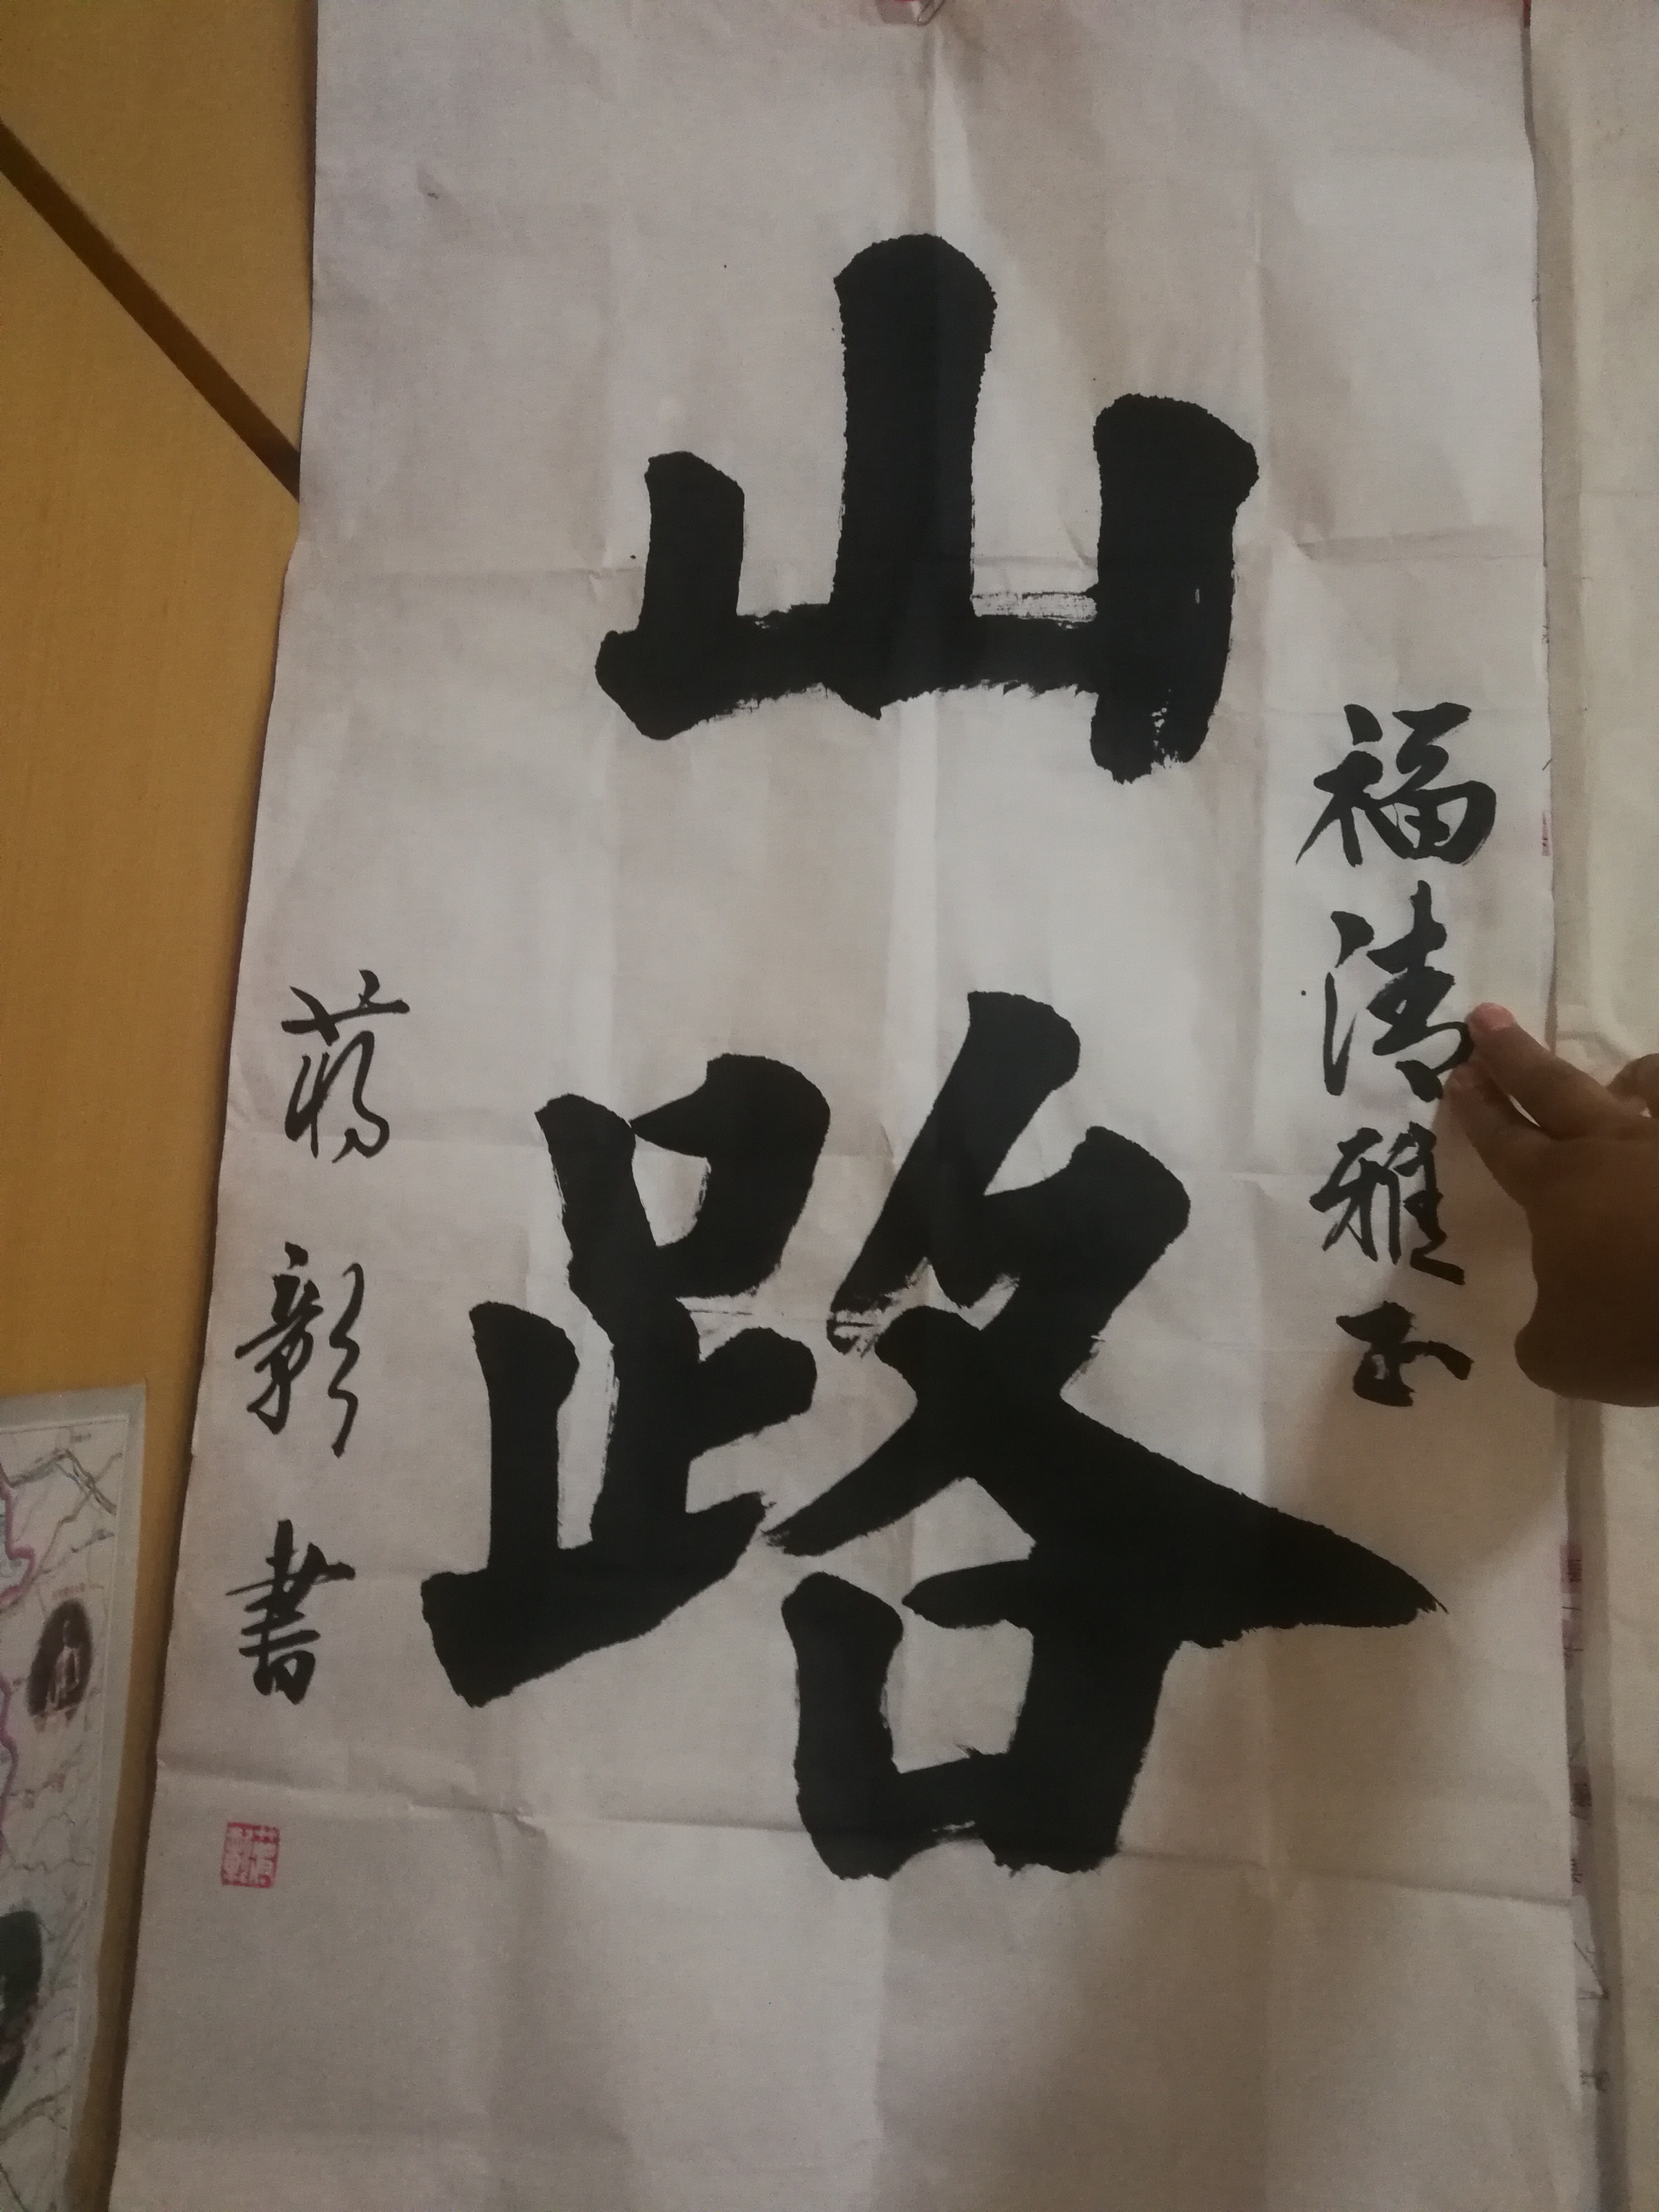 福清雅正
山路
蒋彰書